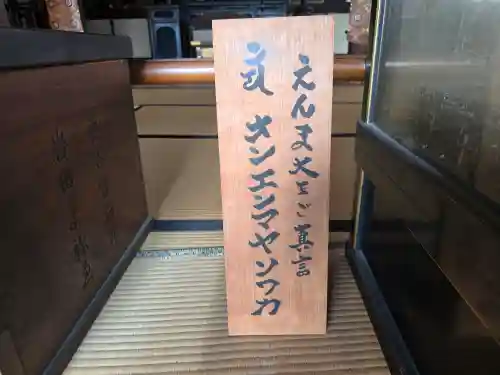 えんま大王ご真言
オンエンマヤソワカ